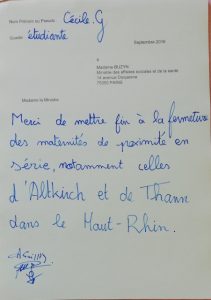 Nom Prénom ou Pseudo Cécile.G
Qualité étudiante
Septembre 2018
à
Madame BUZYN
Ministre des affaires sociales et de la santé
14 avenue Duquesne
75350 PARIS
Madame la Ministre
Merci de mettre fin à la fermeture
des maternités de proximité en
série, notamment celles
d'Altkirch et de Thann
dans le Haut-Rhin.